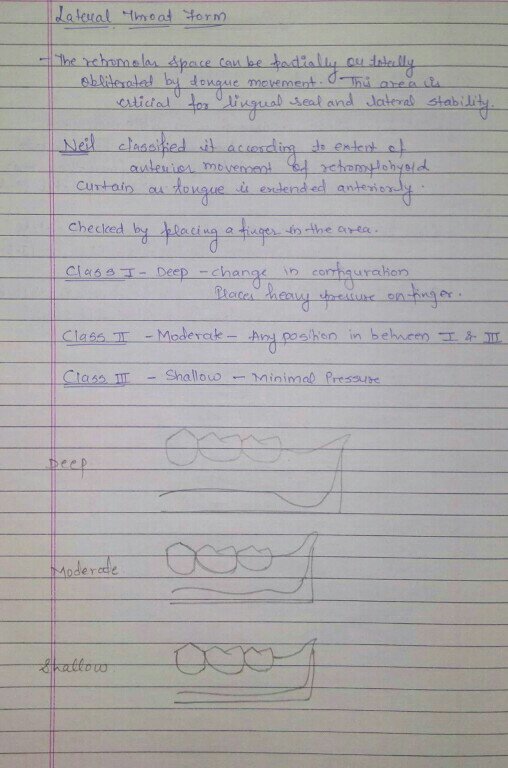 Lateral Throat Form
- The retromolar space can be partially or totally
obliterated by tongue movement. This area is
critical for lingual seal and lateral stability.
Neil classified it according to extent of
anterior movement of retromylohyoid
curtain as tongue is extended anteriorly.
Checked by placing a finger in the area.
Class I - Deep - change in configuration
Places heavy pressure on finger.
Class II - Moderate - Any position in between I & III
Class III - Shallow - Minimal Pressure
Deep
Moderate
Shallow